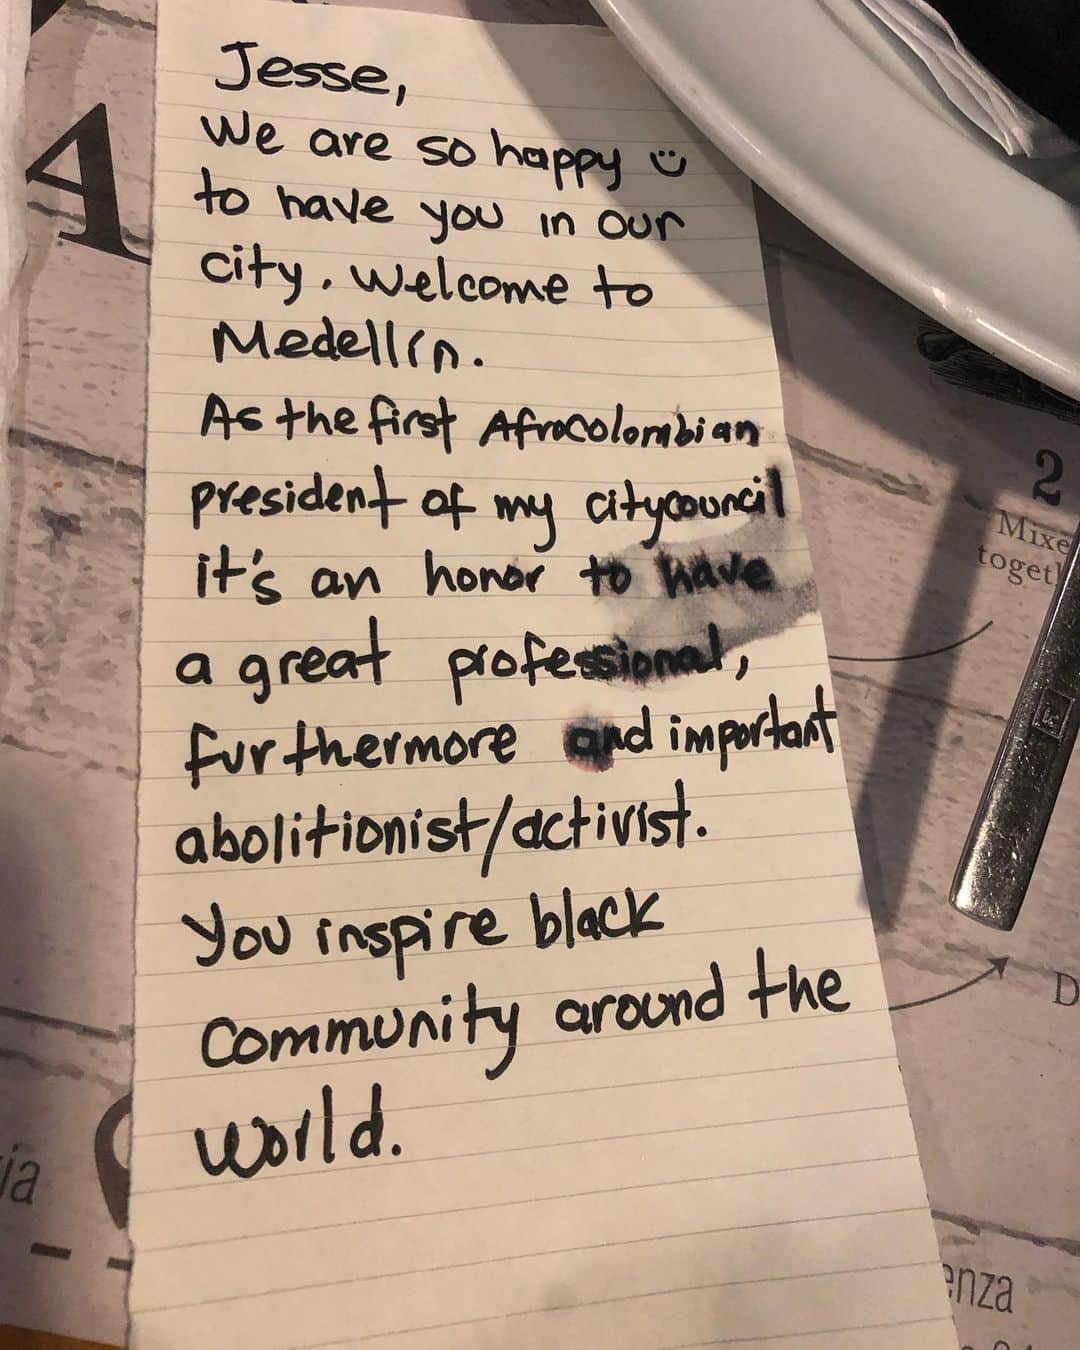 A
Jesse,
We are so happy
to have you in our
city. Welcome to
Medellín.
As the first Afrocolombian
president of my citycouncil
it's an honor to have
a great professional,
furthermore and important
abolitionist/activist.
You inspire black
community around the
world.
2
Mixe
toget
D
ia
enza